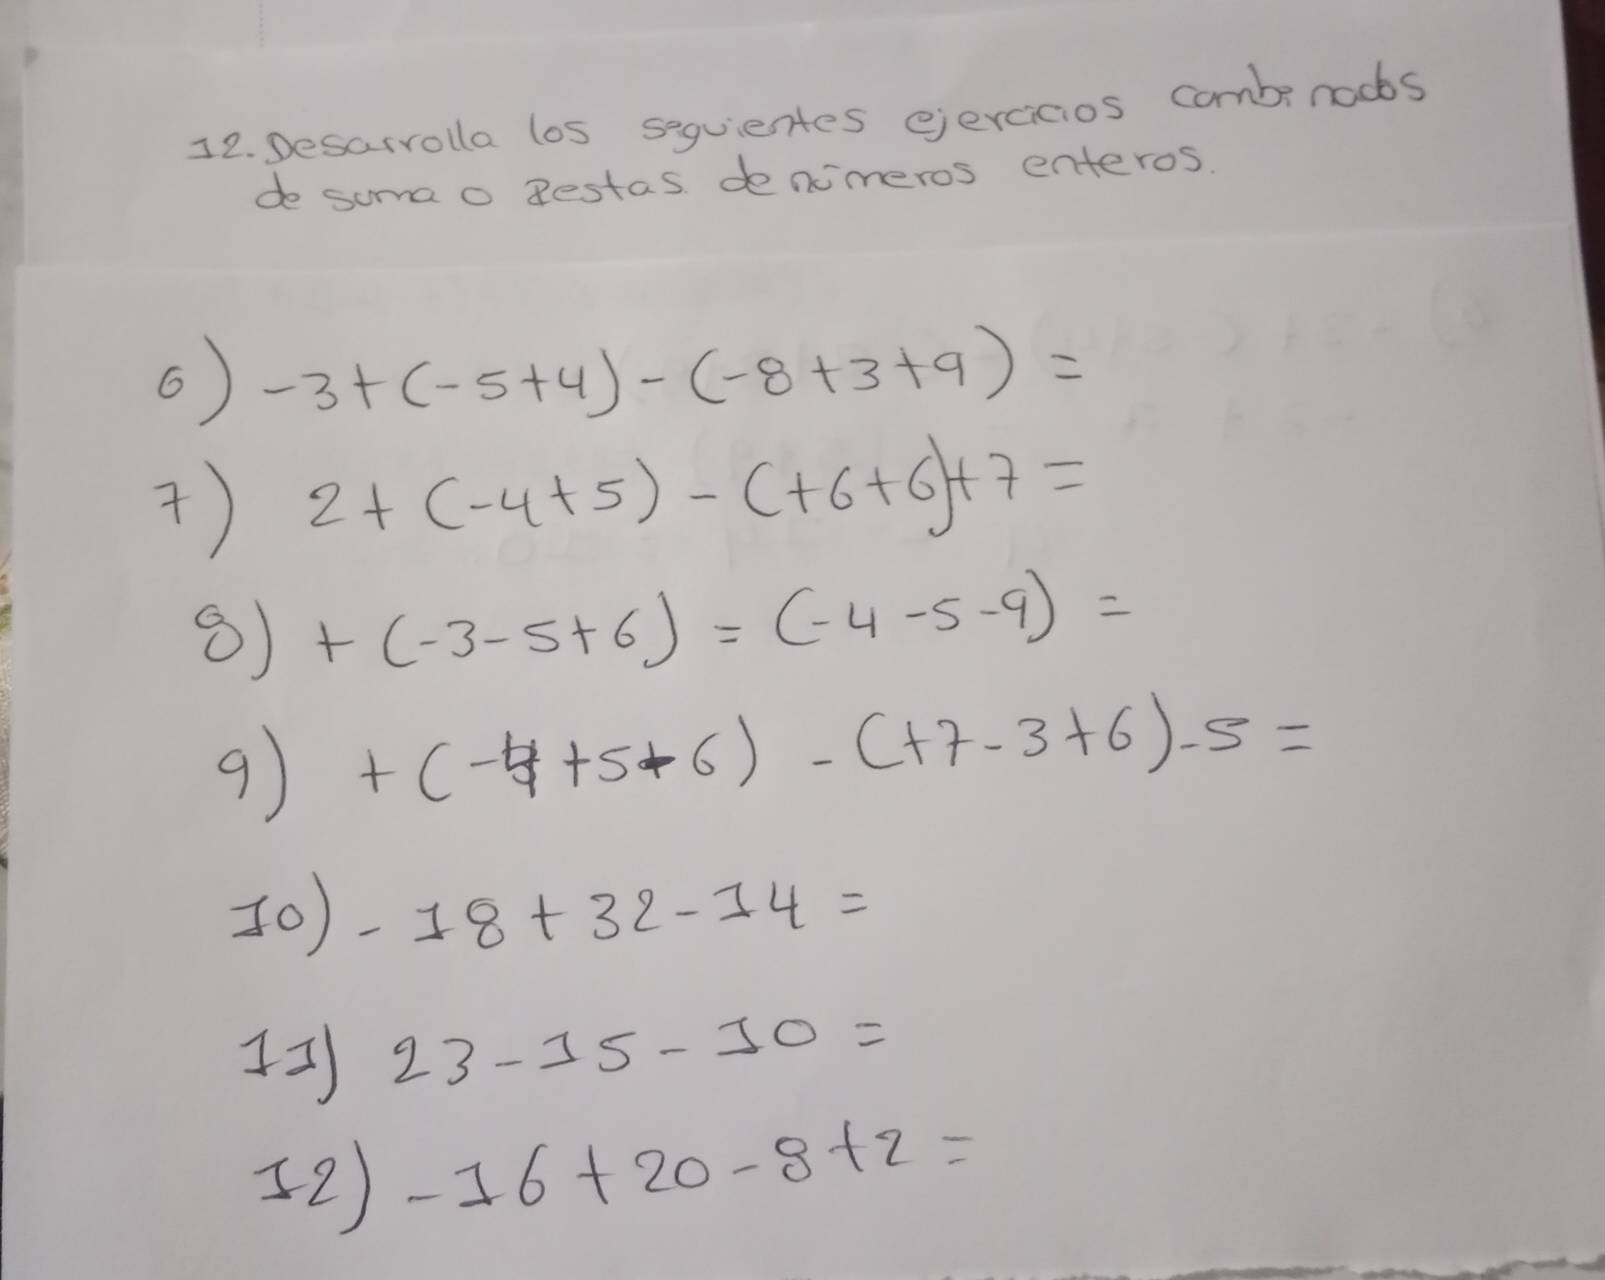 12. Desarrolla los seguientes ejercicios combinados
de suma o Restas de números enteros.
6) -3+(-5+4)-(-8+3+9) =
7) 2+(-4+5)-(+6+6)+7=
8) +(-3-5+6) = (-4-5-9) =
9) +(-4+5+6) - (+7-3+6)-5=
10) -18+32-14=
11) 23-15-10=
12) -16+20-8+2=